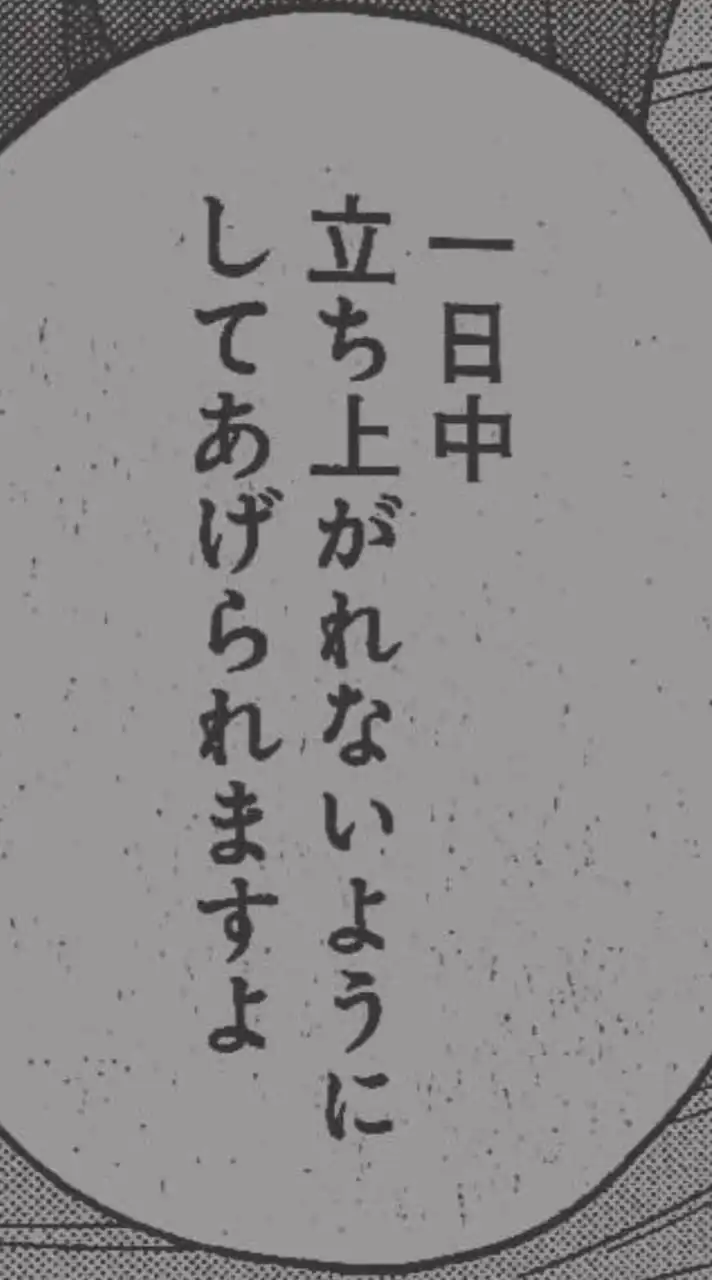 一日中
立ち上がれないように
してあげられますよ